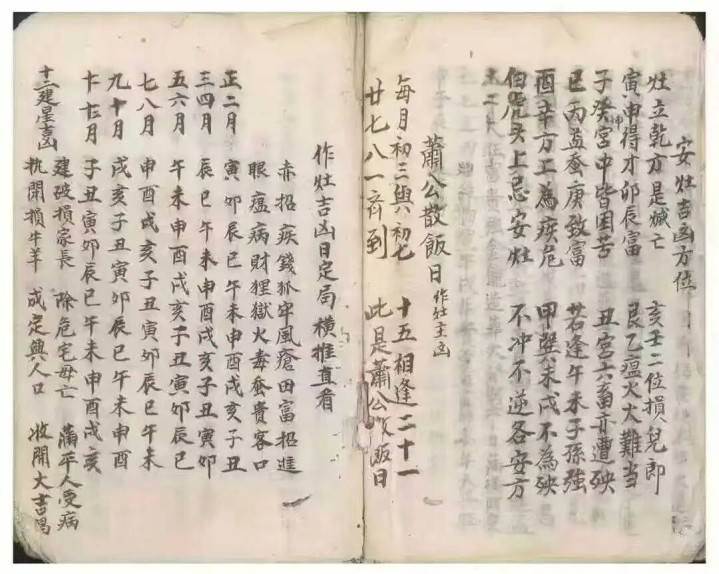 安灶吉凶方位
灶立乾方是滅亡　亥壬二位損兒即
寅申得才卯辰富　艮乙瘟火大難当
子癸宮中皆困苦　丑宮六畜亦遭殃
巳丙益蚕庚致富　若逢午未子孫強
酉辛方工為疾厄　甲巽未戌不為殃
伯虎头上忌安灶　不冲不逆各安方
蕭公散飯日 作灶主凶
每月初三與初七　十五相逢二十一
廿七八一齊到　此是蕭公散飯日
作灶吉凶日定局 橫推直看
赤招疾錢狐牢風瘡田富招進
眼瘟病財狸獄火毒蚕貴客口
正二月　寅卯辰巳午未申酉戌亥子丑
三四月　辰巳午未申酉戌亥子丑寅卯
五六月　午未申酉戌亥子丑寅卯辰巳
七八月　申酉戌亥子丑寅卯辰巳午未
九十月　戌亥子丑寅卯辰巳午未申酉
十十二月　子丑寅卯辰巳午未申酉戌亥
十二建星吉凶
建破損家長　除危宅母亡　滿平人受病
执閉損牛羊　成定興人口　收開大吉昌